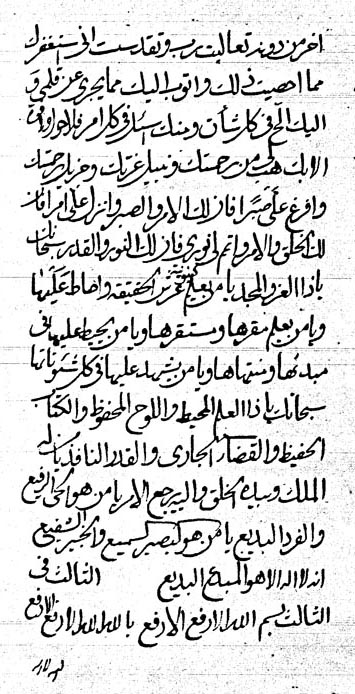 اخر من دونه تعاليت رب وتقدست انى استغفرك
مما احصيت ذلك واتوب اليك مما يجرى عن قلمى و
اليك الح فى كل شأن ومنك اسئل فى كل امر فلا حول ولا قوة
الا بك هب لى من رحمتك
وافرغ على صبرا فان لك الامر والصبر وانزل على امرا فان
لك الخلق والامر واتم لى نورى فان لك النور والقدر سبحانك
يا ذا العز والمجد يا من يعلم عرش الحقيقة واحاط عليها
ويا من يعلم مقرها ومستقرها ويا من يحيط عليها فى
مبدئها ومنتهاها ويا من يشهد عليها فى كل شئوناتها
سبحانك يا ذا العلم المحيط واللوح المحفوظ والكتاب
الحفيظ والقضاء الجارى والقدر النافذ يا من له
الملك وبيده الخلق واليه يرجع الامر يا من هو الحى الرفيع
والفرد البديع يا من هو البصير السميع والخبير الشفيع
انه لا اله الا هو المبدع البديع الثالث فى
الثالث بسم الله الارفع الارفع بالله الله الارفع الارفع